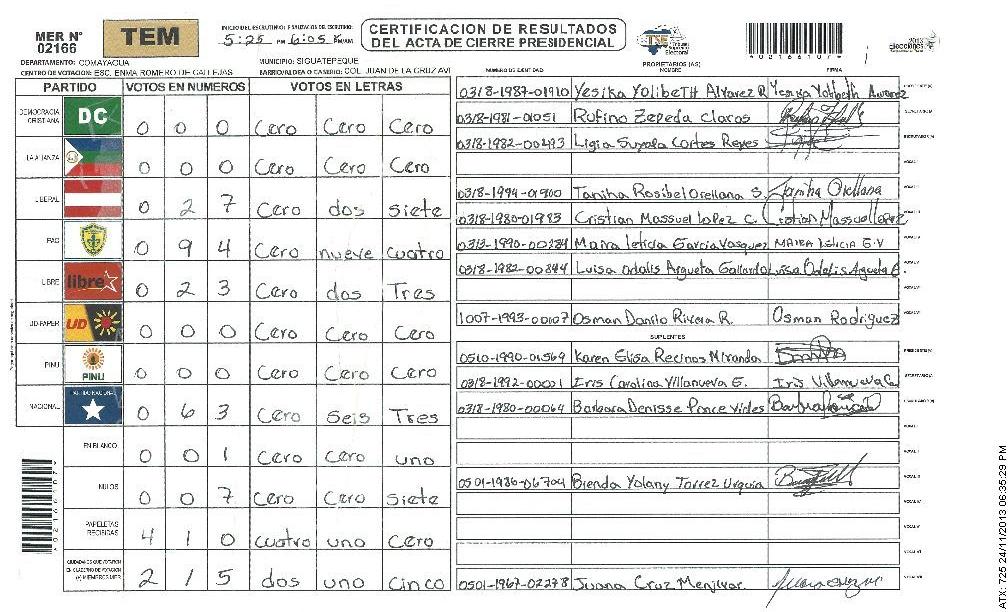 MER Nº 02166
TEM
INICIO DEL ESCRUTINIO: FINALIZACION DEL ESCRUTINIO:
5:25 PM 6:05 AM/AM
CERTIFICACION DE RESULTADOS
DEL ACTA DE CIERRE PRESIDENCIAL
TSE Tribunal Supremo Electoral
*02166107*
2013 elecciones
DEPARTAMENTO: COMAYAGUA MUNICIPIO: SIGUATEPEQUE
CENTRO DE VOTACION: ESC. ENMA ROMERO DE CALLEJAS BARRIO/ALDEA O CASERIO: COL. JUAN DE LA CRUZ AVI
PARTIDO VOTOS EN NUMEROS VOTOS EN LETRAS
DEMOCRACIA CRISTIANA DC 0 0 0 Cero Cero Cero
LA ALIANZA 0 0 0 Cero Cero Cero
LIBERAL 0 2 7 Cero dos siete
PAC 0 9 4 Cero nueve cuatro
LIBRE libre 0 2 3 Cero dos Tres
UD-FAPER UD 0 0 0 Cero Cero Cero
PINU PINU 0 0 0 Cero Cero Cero
NACIONAL PARTIDO NACIONAL 0 6 3 Cero Seis Tres
EN BLANCO 0 0 1 Cero Cero uno
NULOS 0 0 7 Cero Cero Siete
PAPELETAS RECIBIDAS 4 1 0 cuatro uno Cero
CIUDADANOS QUE VOTARON EN CUADERNO DE VOTACION (+) MIEMBROS MER 2 1 5 dos uno Cinco
NUMERO DE IDENTIDAD PROPIETARIOS (AS) NOMBRE FIRMA
0318-1987-01910 Yesika Yolibeth Alvarez R. Yesika Yolibeth Alvarez
0318-1981-01051 Rufino Zepeda Claros
0318-1982-00293 Ligia Suyapa Cortes Reyes
Tanitha Rosibel Orellana S. Tanitha Orellana
0318-1980-01983 Cristian Massuel Lopez C. Cristian Massuel Lopez
Maira leticia Garcia Vasquez MAIRA LETICIA G.V
0318-1982-00844 Luisa odalis Argueta Gallardo Luisa Odalis Argueta G.
1007-1993-00107 Osman Danilo Rivera R. Osman Rodriguez
SUPLENTES
0510-1990-01569 Karen Elisa Recinos Miranda
0318-1992-00021 Iris Carolina Villanueva E. Iris Villanueva
0318-1980-00064 Barbara Denisse Ponce Virles
0501-1986-06704 Brenda Yolany Torrez Urquia
0501-1967-02278 Juana Cruz Menjivar.
ATX-725 24/11/2013 06:35:29 PM